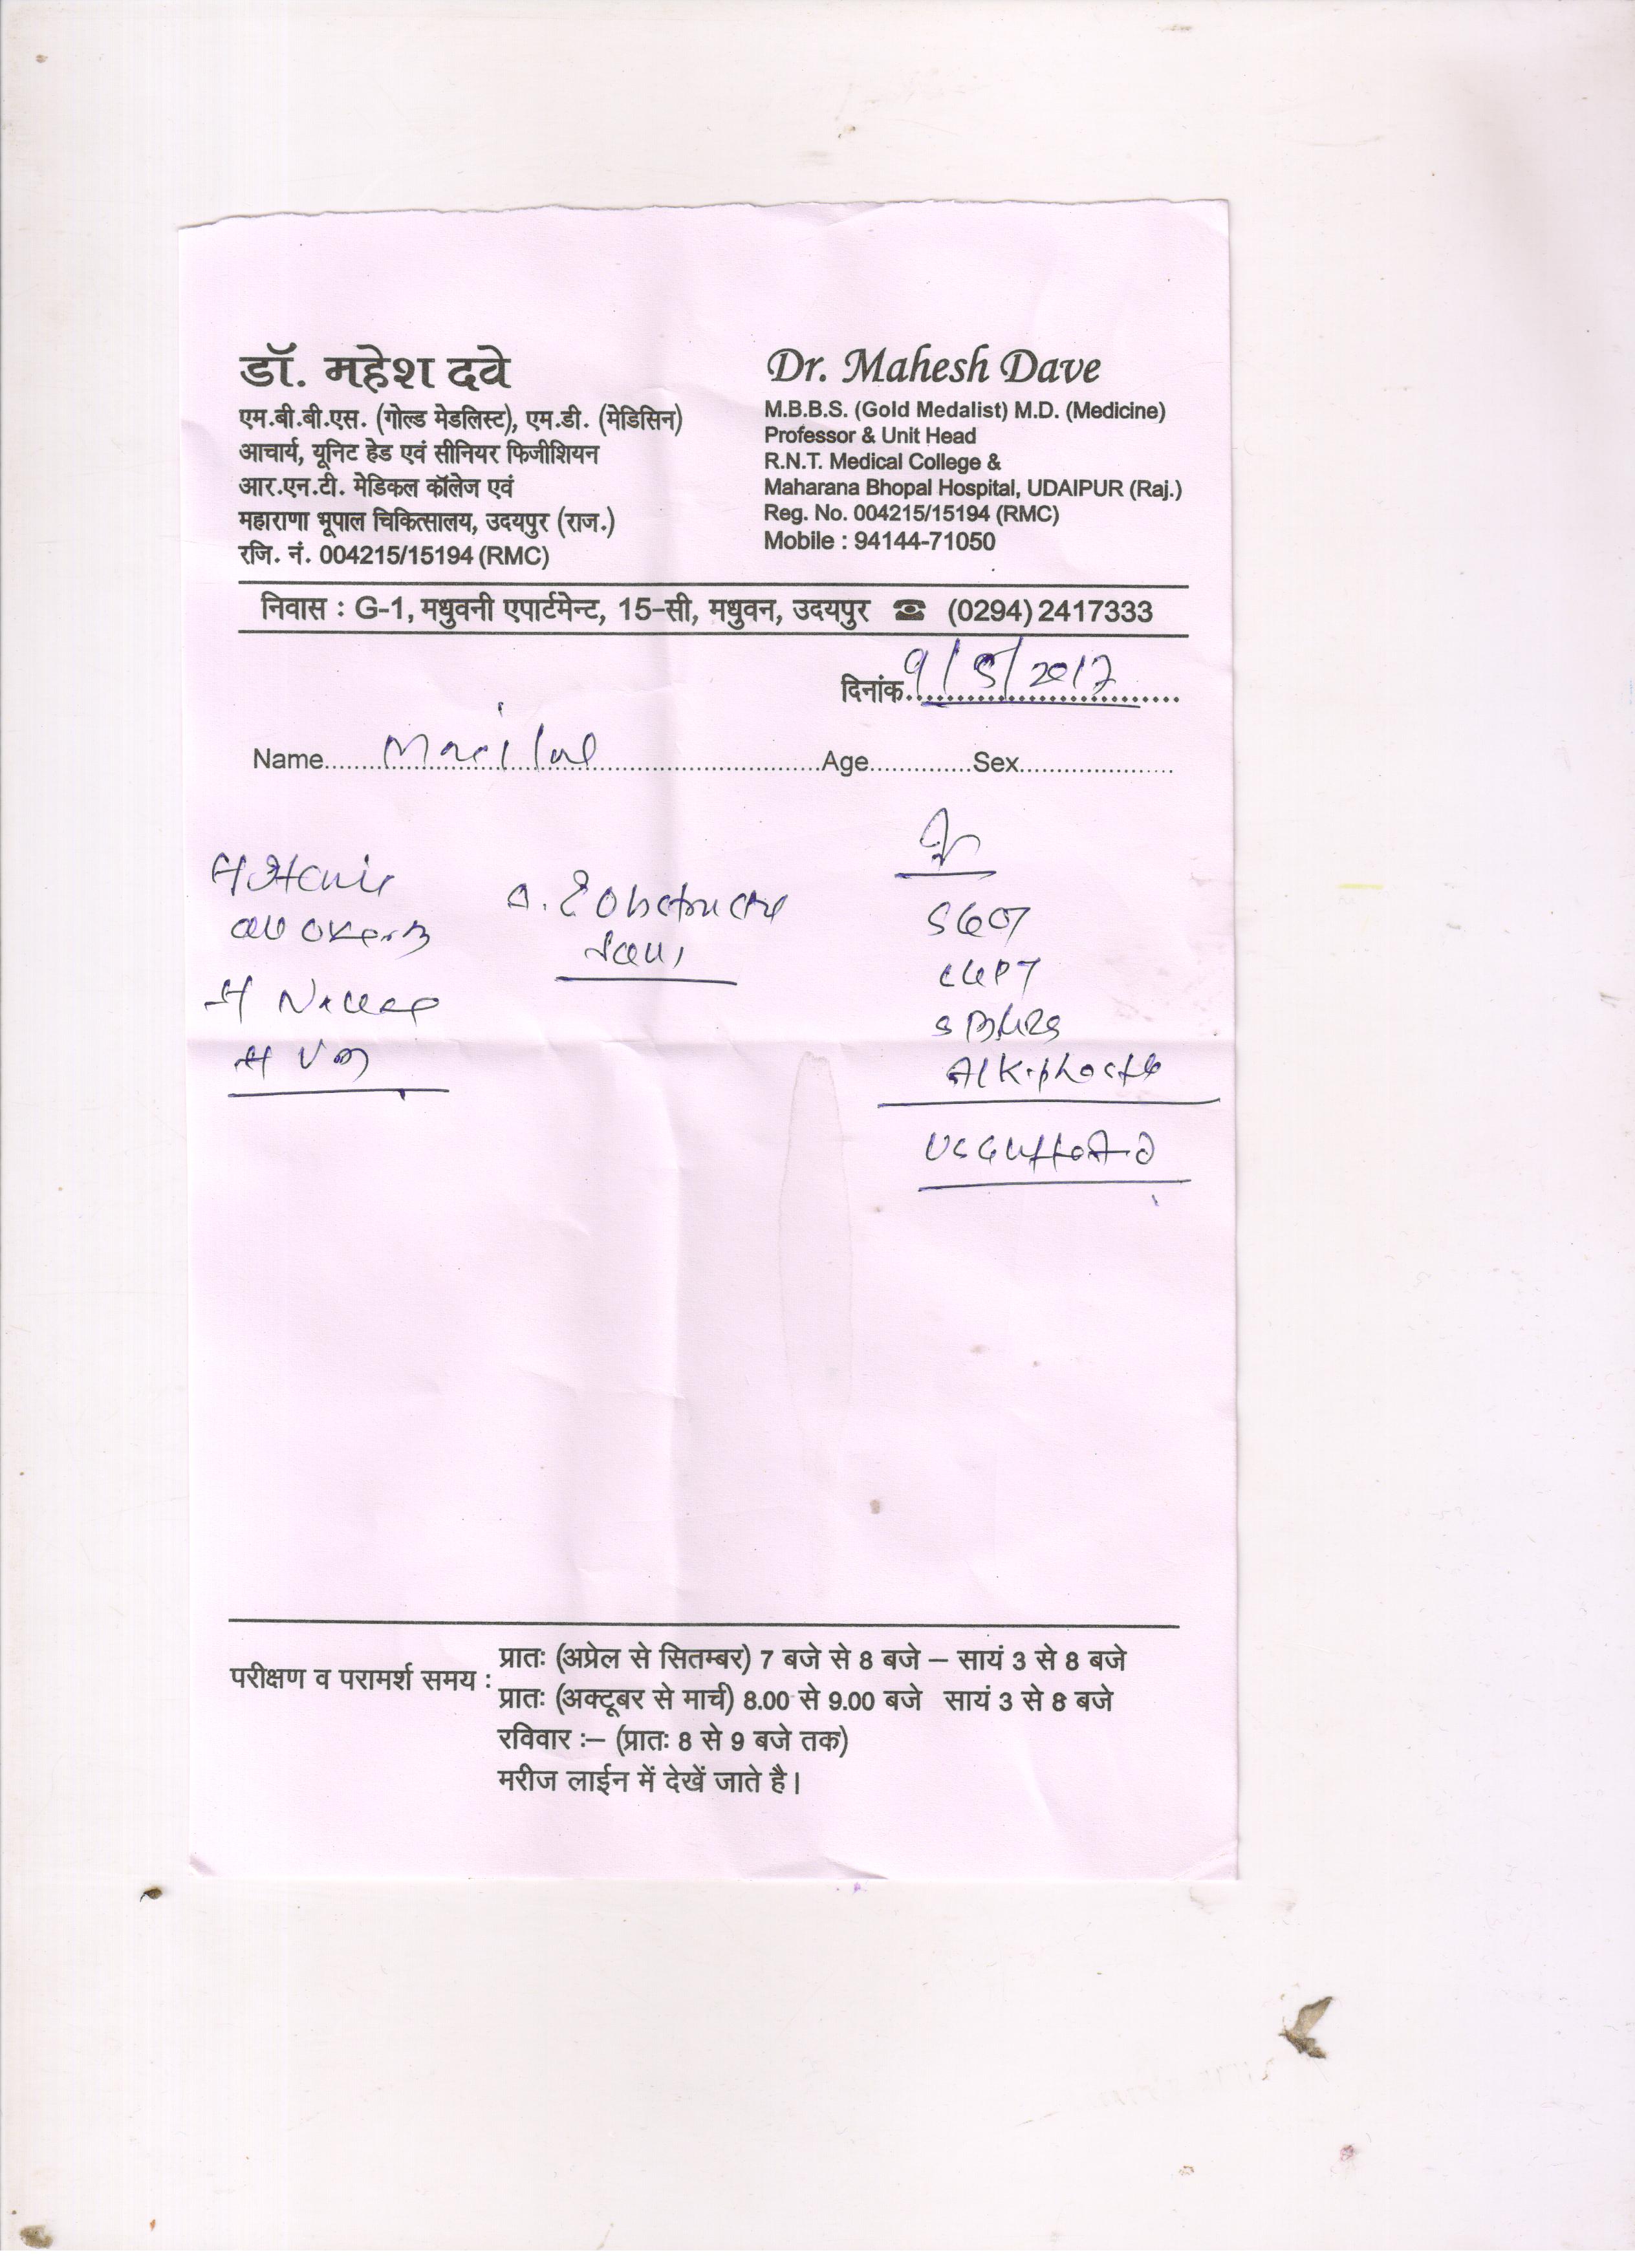 डॉ. महेश दवे
एम.बी.बी.एस. (गोल्ड मेडलिस्ट), एम.डी. (मेडिसिन)
आचार्य, यूनिट हेड एवं सीनियर फिजीशियन
आर.एन.टी. मेडिकल कॉलेज एवं
महाराणा भूपाल चिकित्सालय, उदयपुर (राज.)
रजि. नं. 004215/15194 (RMC)
Dr. Mahesh Dave
M.B.B.S. (Gold Medalist) M.D. (Medicine)
Professor & Unit Head
R.N.T. Medical College &
Maharana Bhopal Hospital, UDAIPUR (Raj.)
Reg. No. 004215/15194 (RMC)
Mobile : 94144-71050
निवास : G-1, मधुवनी एपार्टमेन्ट, 15-सी, मधुवन, उदयपुर ☎ (0294) 2417333
दिनांक 9/5/2017
Name Age Sex
Obstructive
SGOT
SGPT
Alk.phos
परीक्षण व परामर्श समय : प्रातः (अप्रेल से सितम्बर) 7 बजे से 8 बजे – सायं 3 से 8 बजे
प्रातः (अक्टूबर से मार्च) 8.00 से 9.00 बजे सायं 3 से 8 बजे
रविवार :– (प्रातः 8 से 9 बजे तक)
मरीज लाईन में देखें जाते है।